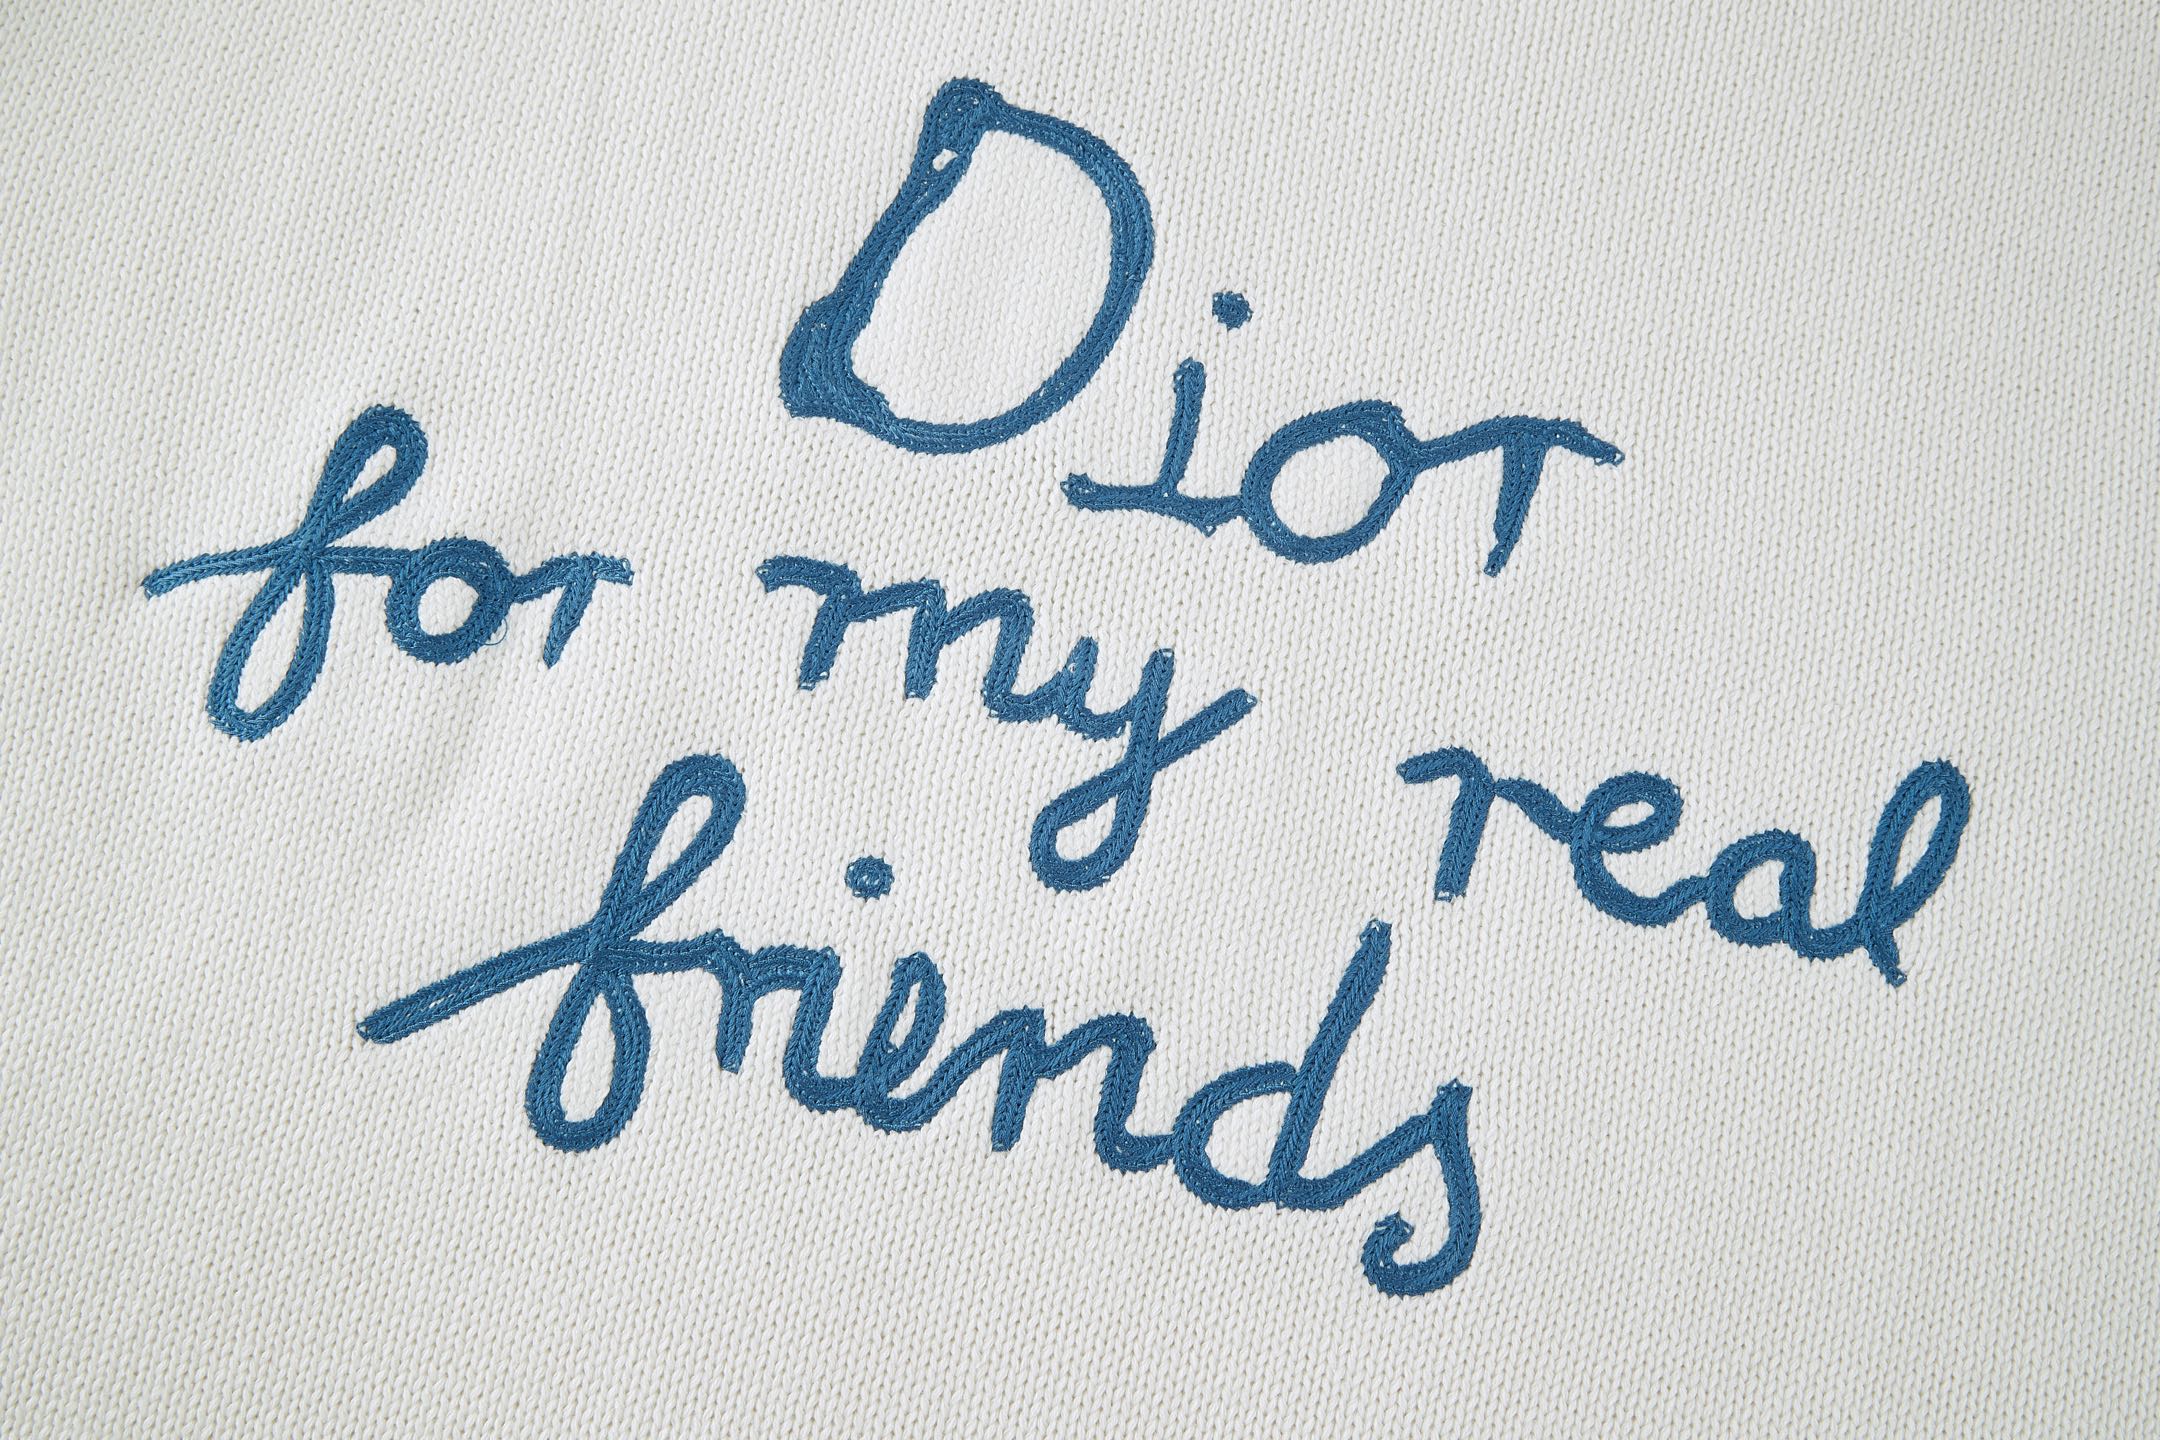 Dior
for my real
friends